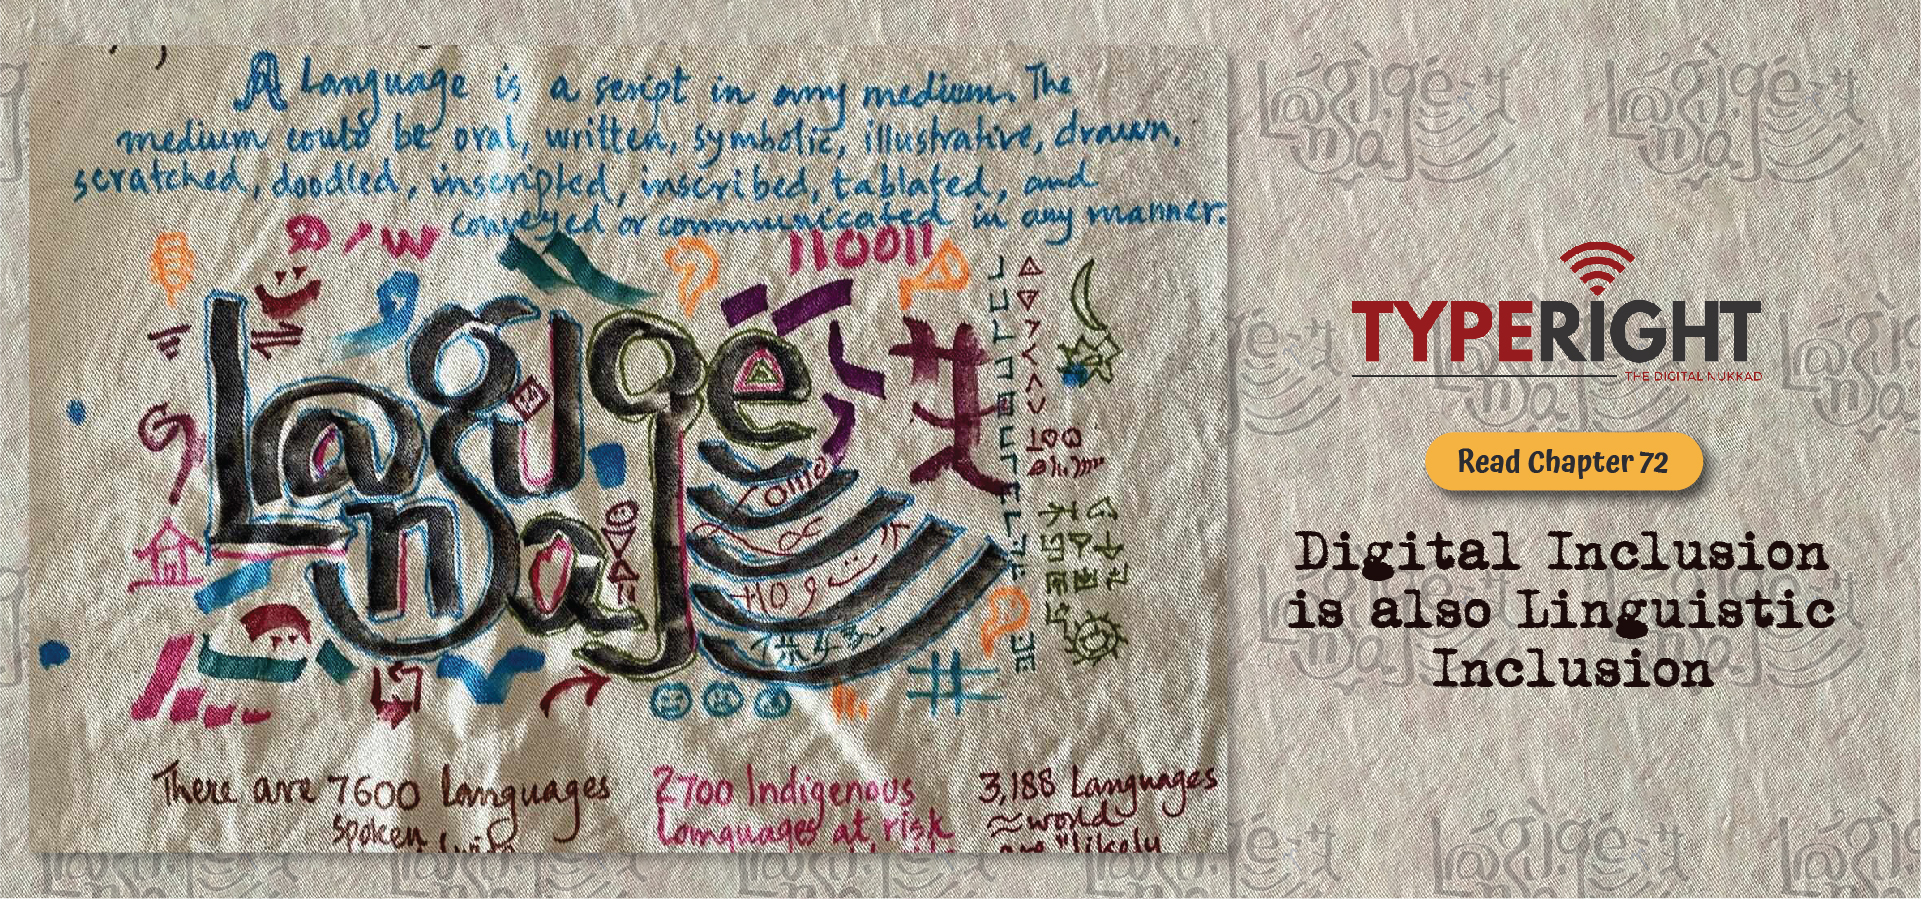 A Language is a script in any medium. The
medium could be oral, written, symbolic, illustrative, drawn,
scratched, doodled, inscripted, inscribed, tablated, and
conveyed or communicated in any manner.
110011
Language
There are 7600 Languages
spoken
2700 Indigenous
Languages at risk
3,188 Languages
≈ world
are "likely
TYPERIGHT
THE DIGITAL NUKKAD
Read Chapter 72
Digital Inclusion
is also Linguistic
Inclusion